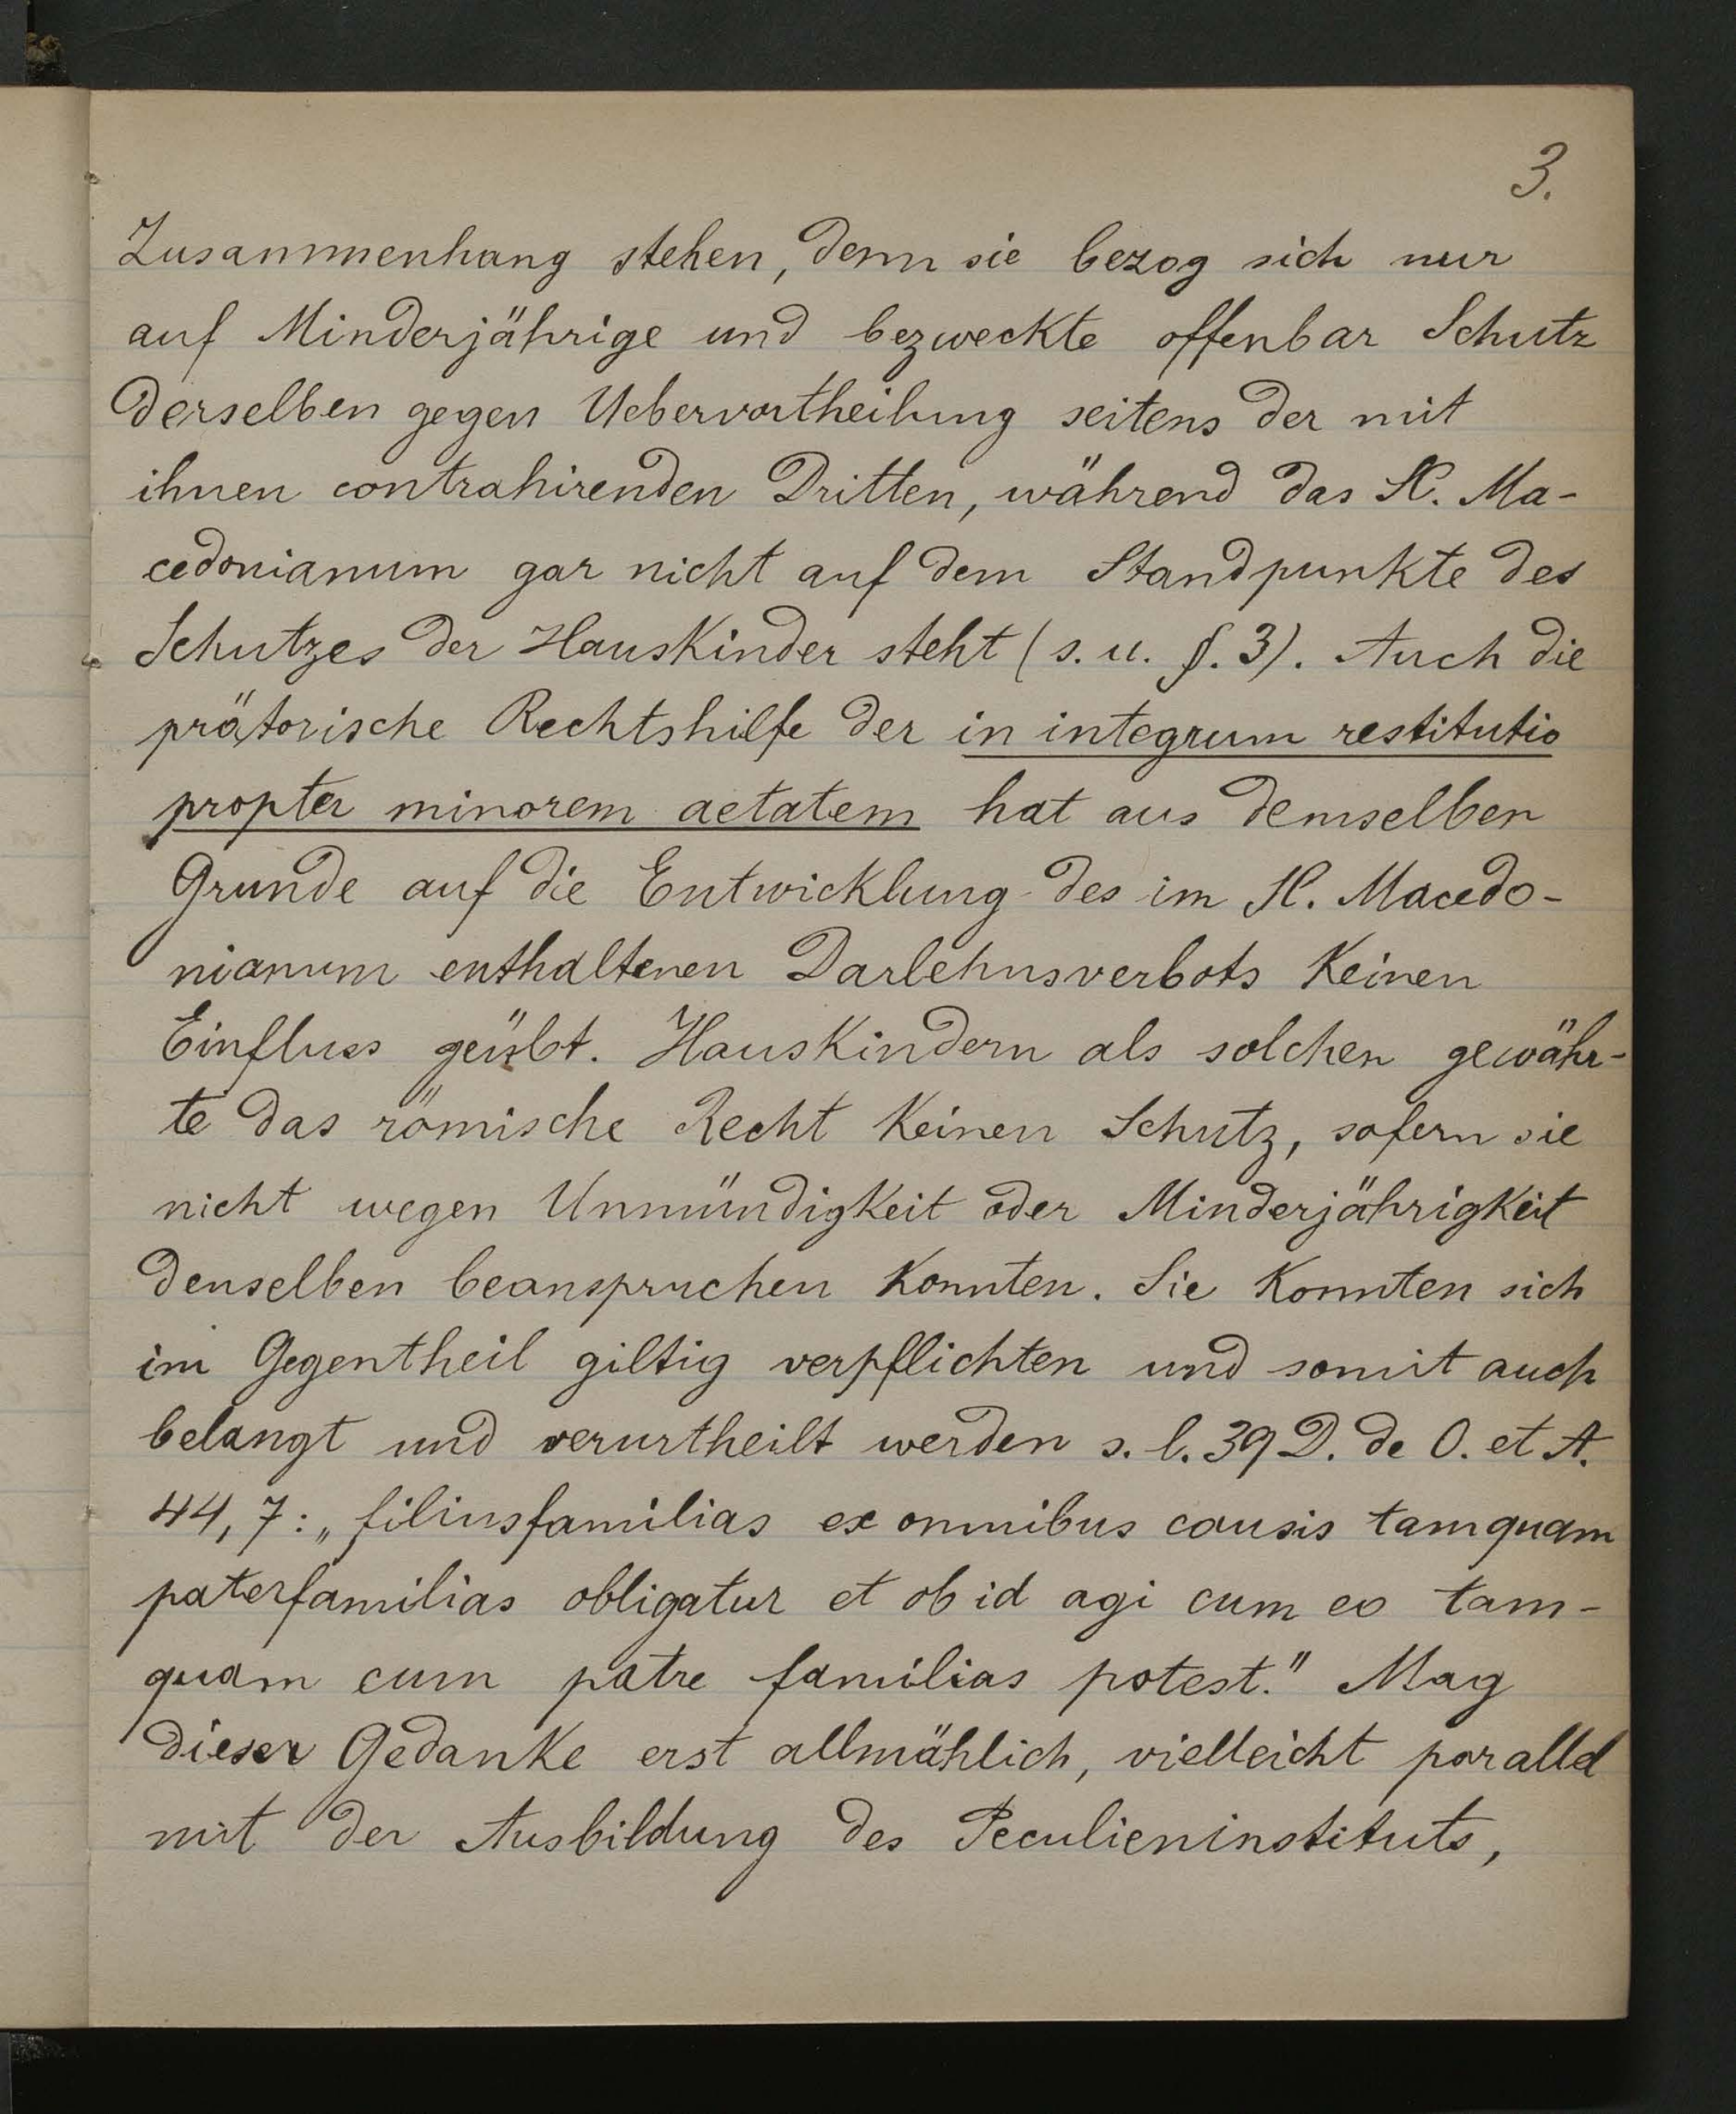 3.
Zusammenhang stehen, denn sie bezog sich nur
auf Minderjährige und bezweckte offenbar Schutz
derselben gegen Uebervortheilung seitens der mit
ihnen contrahirenden Dritten, während das SC. Ma-
cedonianum gar nicht auf dem Standpunkte des
Schutzes der Hauskinder steht (s. u. §. 3). Auch die
prätorische Rechtshilfe der in integrum restitutio
propter minorem aetatem hat aus demselben
Grunde auf die Entwicklung des im SC. Macedo-
nianum enthaltenen Darlehnsverbots keinen
Einfluss geübt. Hauskindern als solchen gewähr-
te das römische Recht keinen Schutz, sofern sie
nicht wegen Unmündigkeit oder Minderjährigkeit
denselben beanspruchen konnten. Sie konnten sich
im Gegentheil giltig verpflichten und somit auch
belangt und verurtheilt werden s. l. 39 D. de O. et A.
44, 7: „filiusfamilias ex omnibus causis tamquam
paterfamilias obligatur et ob id agi cum eo tam-
quam cum patre familias potest." Mag
dieser Gedanke erst allmählich, vielleicht parallel
mit der Ausbildung des Peculieninstituts,